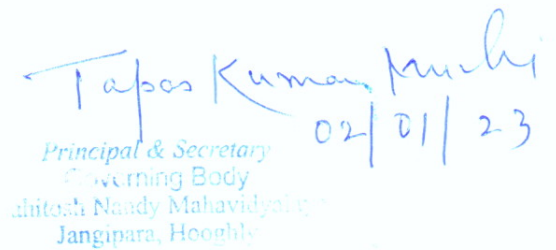 Tapas Kumar
02/01/23
Principal & Secretary
Governing Body
ahitosh Nandy Mahavidyalaya
Jangipara, Hooghly